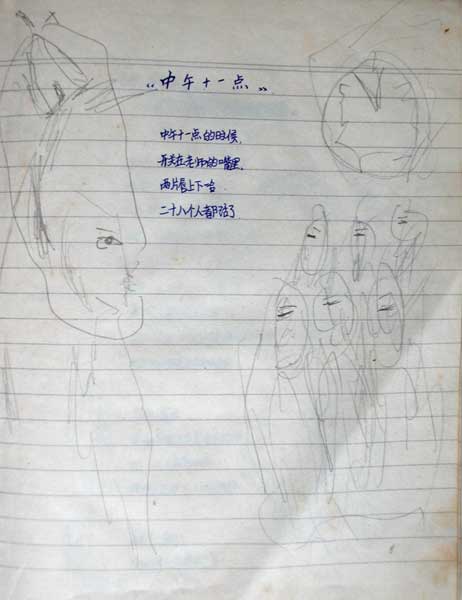 中午十一点
中午十一点的时候,
开关在老师的嘴里,
两片唇上下哈
二十八个人都活了